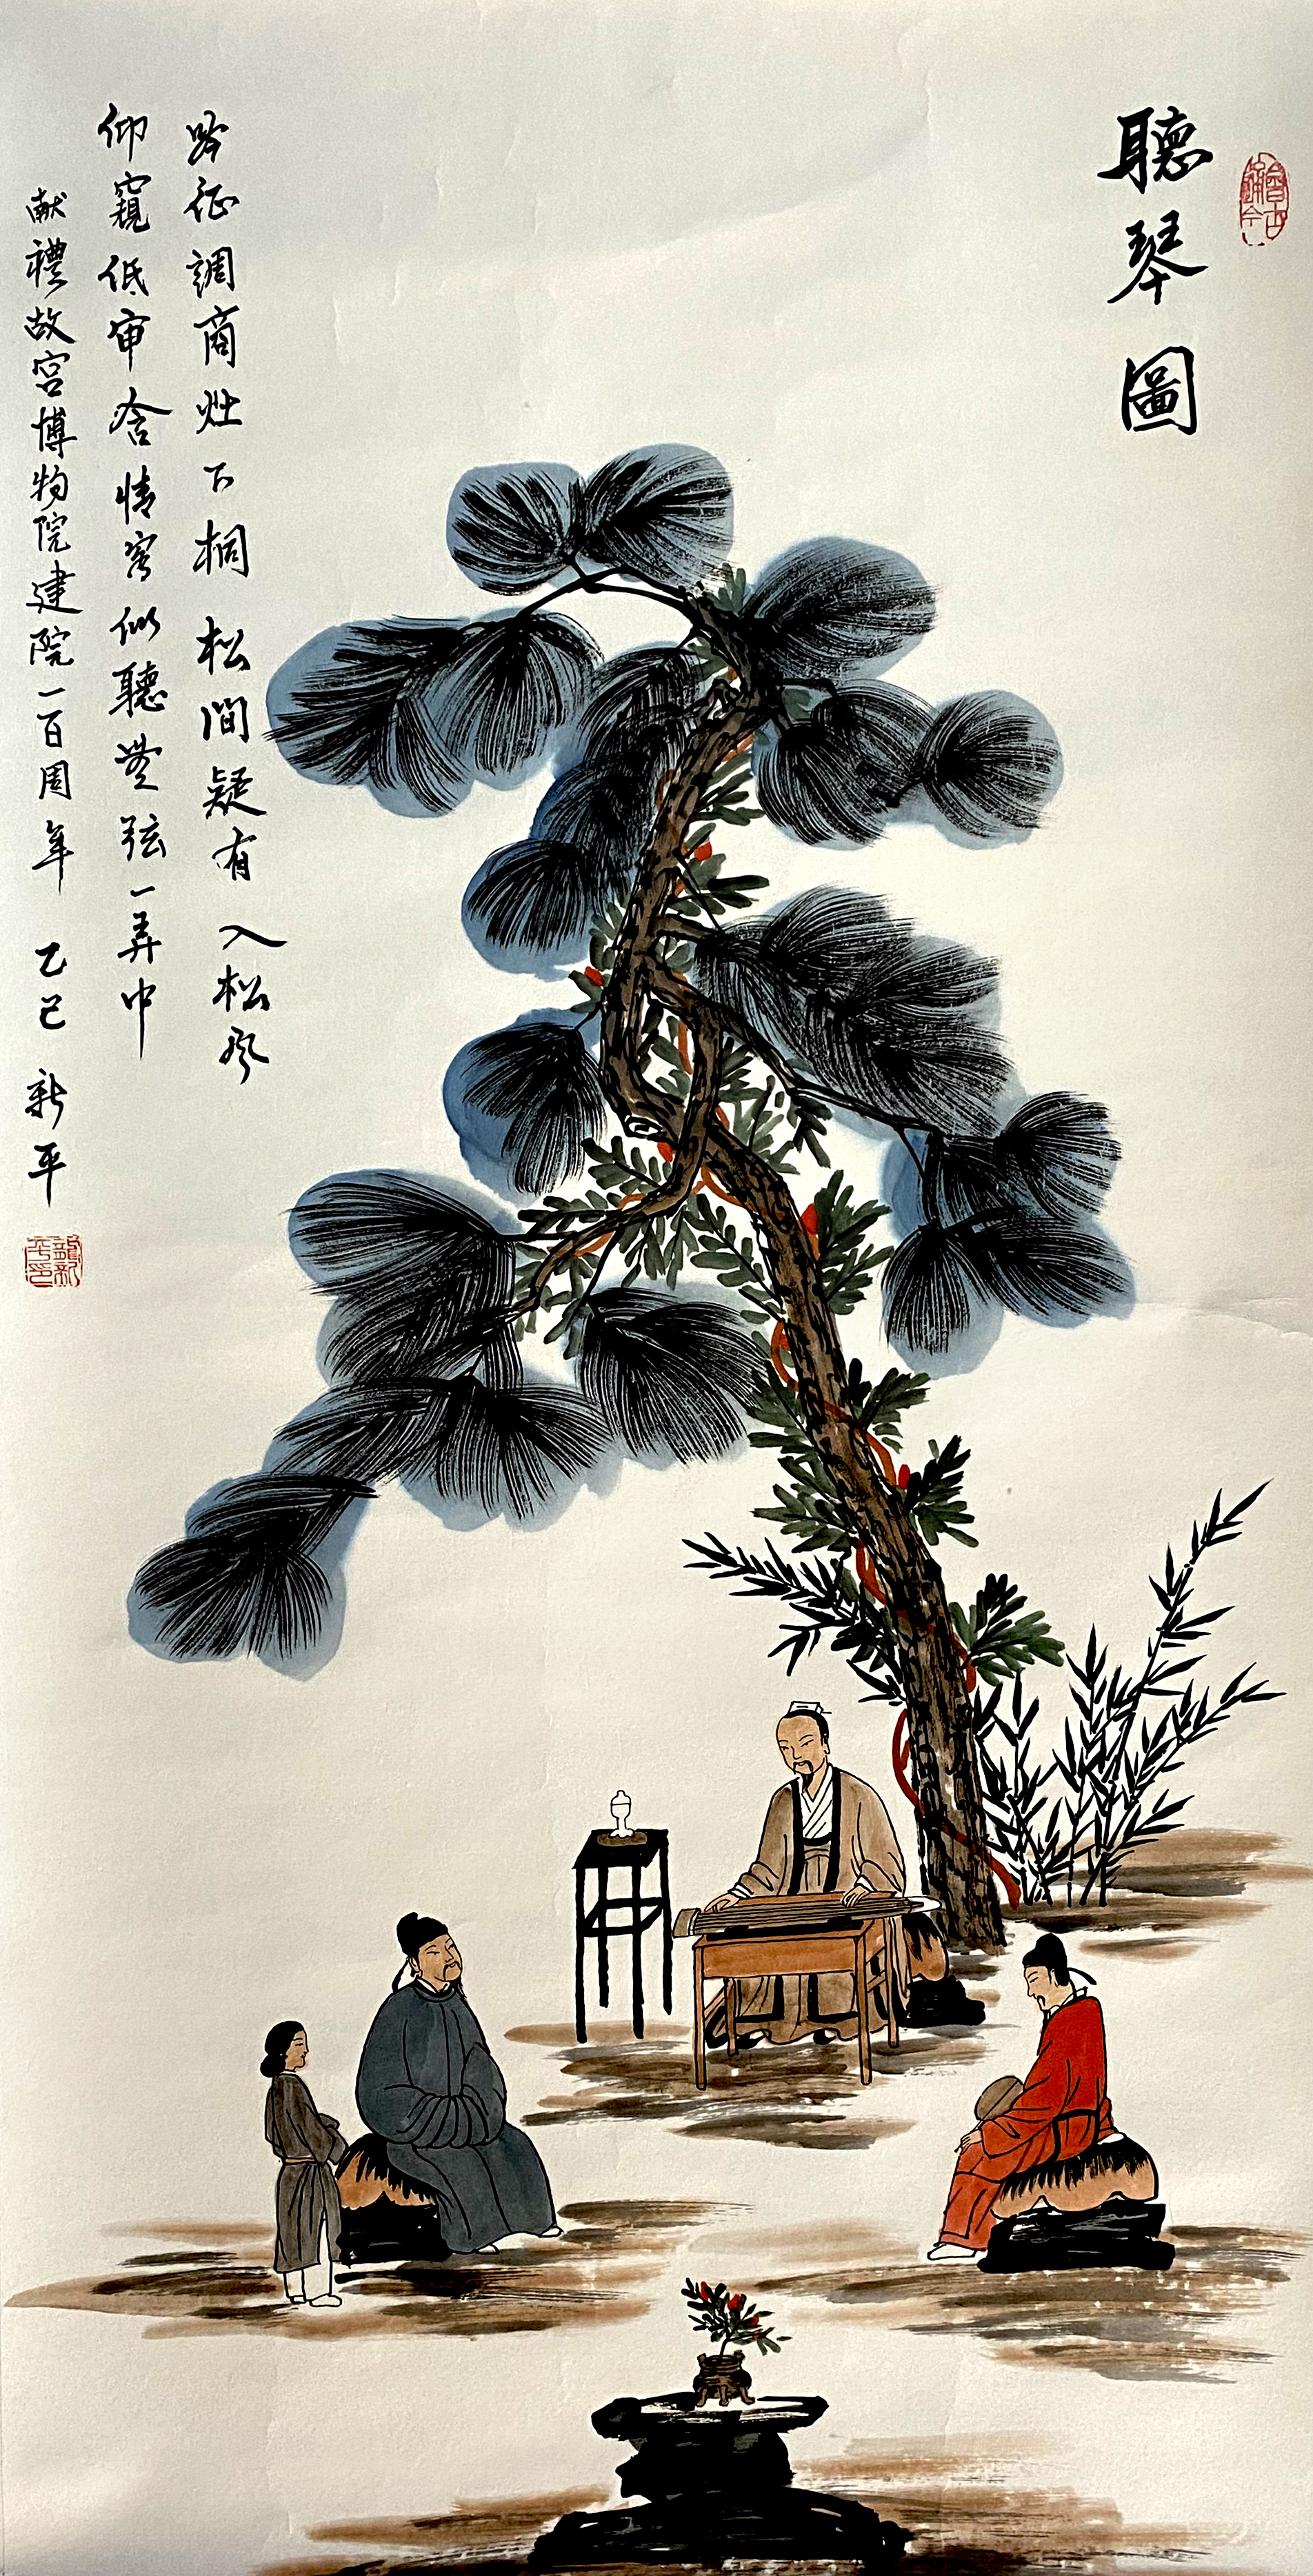 聽琴圖
吟征調商灶下桐 松間疑有入松風
仰窺低审含情客 似聽無弦一弄中
献禮故宫博物院建院一百周年 乙巳 新平